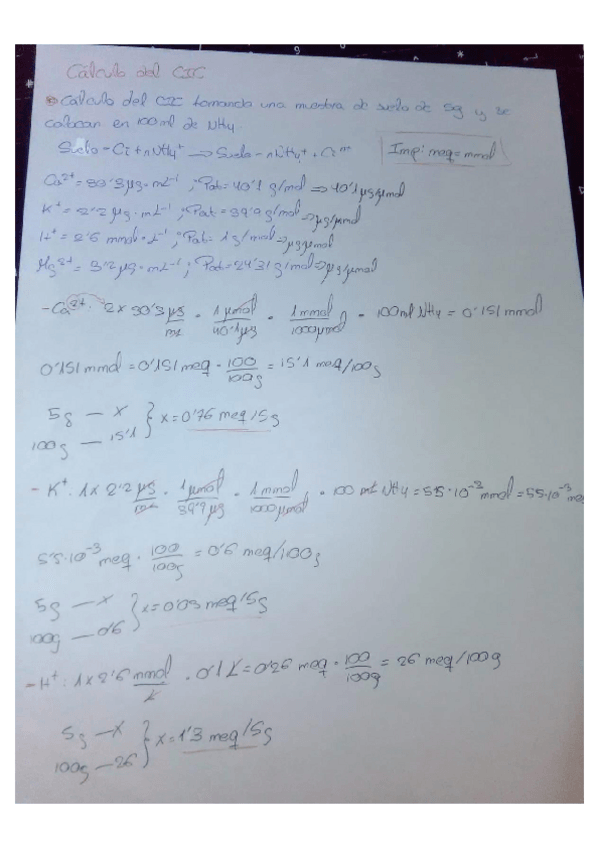 Cálculo del CIC
Cálculo del CIC tomando una muestra de suelo de 5g y se
colocan en 100ml de NH4.
Suelo-Ci + nNH4+ → Suelo-nNH4+ + Ci n+
Imp: meq=mmol
Ca2+ = 30'3 µg·mL-1; Pat= 40'1 g/mol ⇒ 40'1 µg/µmol
K+ = 2'2 µg·mL-1; Pat= 39'9 g/mol ⇒ µg/µmol
H+ = 2'6 mmol·L-1; Pat= 1g/mol ⇒ µg/µmol
Mg2+ = 3'2 µg·mL-1; Pat=24'31 g/mol ⇒ µg/µmol
- Ca2+. 2 x 30'3 µg/mL · 1 µmol/40'1 µg · 1 mmol/1000 µmol · 100ml NH4 = 0'151 mmol
0'151 mmol = 0'151 meq · 100/100g = 15'1 meq/100g
5g — x
100g — 15'1 } x = 0'76 meq/5g
- K+. 1 x 2'2 µg/mL · 1 µmol/39'9 µg · 1 mmol/1000 µmol · 100 mL NH4 = 5'5·10-3 mmol = 5'5·10-3 meq
5'5·10-3 meq · 100/100g = 0'6 meq/100g
5g — x
100g — 0'6 } x = 0'03 meq/5g
- H+: 1 x 2'6 mmol/L · 0'1 L = 0'26 meq · 100/100g = 26 meq/100g
5g — x
100g — 26 } x = 1'3 meq/5g